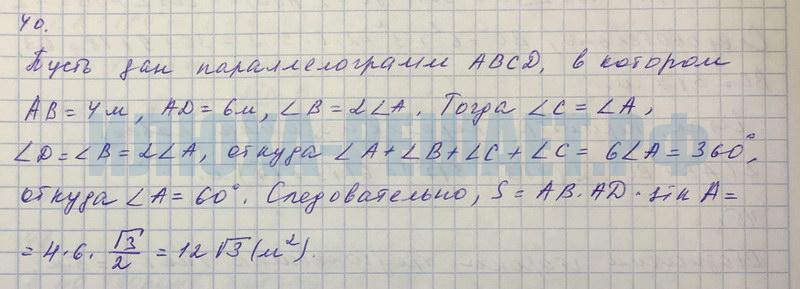 40.
Пусть дан параллелограмм ABCD, в котором
AB = 4м, AD = 6м, ∠B = 2∠A. Тогда ∠C = ∠A,
∠D = ∠B = 2∠A, откуда ∠A + ∠B + ∠C + ∠C = 6∠A = 360°,
откуда ∠A = 60°. Следовательно, S = AB · AD · sin A =
= 4 · 6 · √3/2 = 12√3 (м²).
ИЛЮХА-РЕШАЕТ.РФ